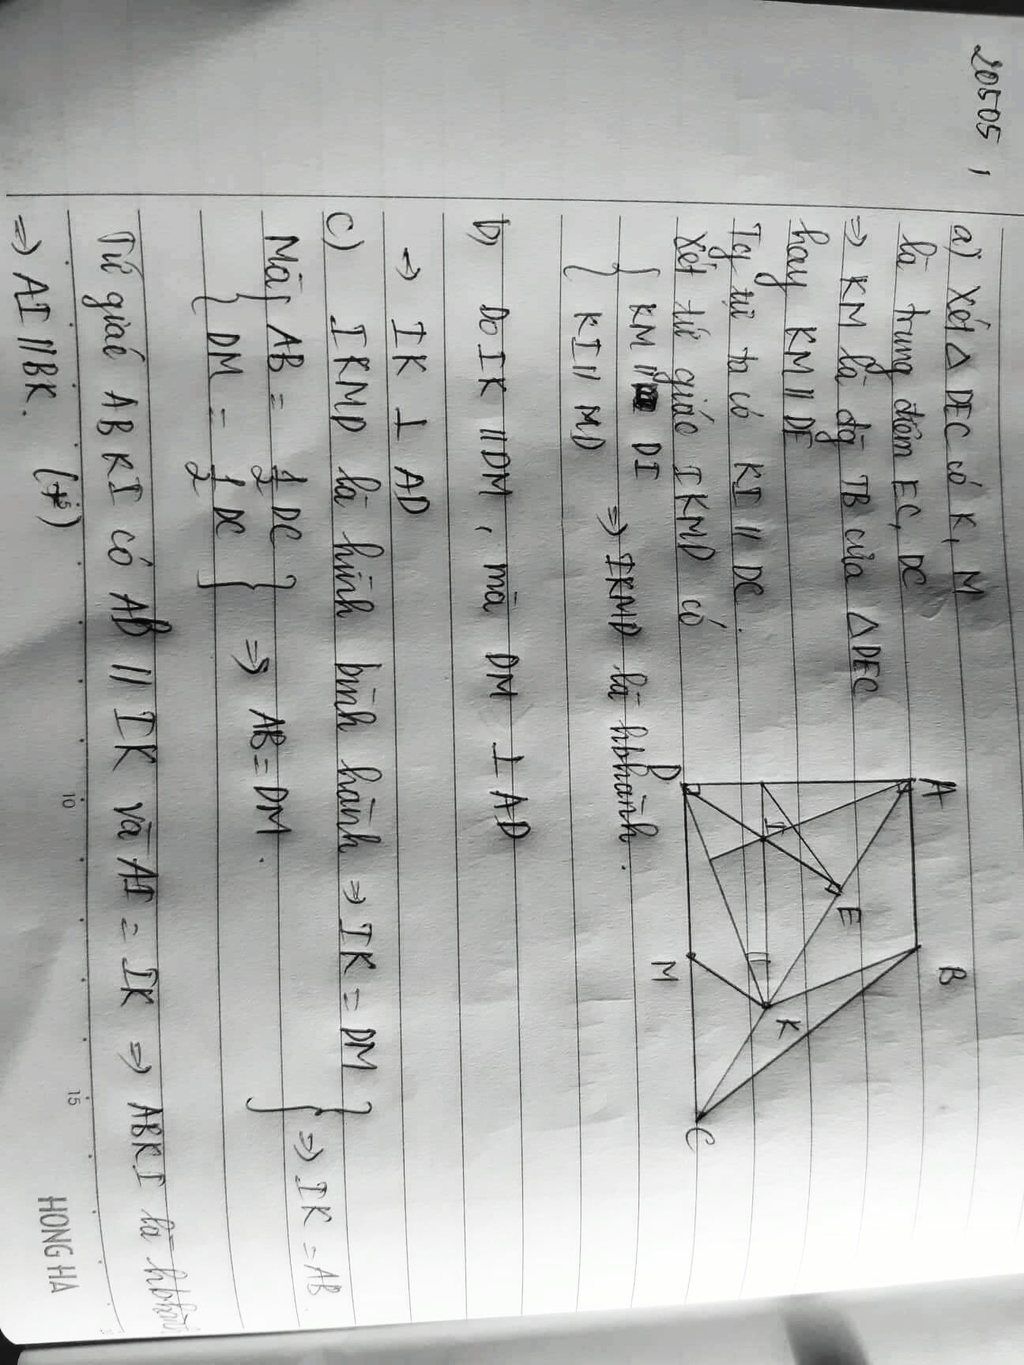 20505,
a) Xét Δ DEC có K, M
là trung điểm EC, DC
⇒ KM là đg TB của Δ DEC
hay KM // DE
Tg tự ta có KI // DC.
Xét tứ giác IKMD có
{ KM // DI
{ KI // MD
⇒ IKMD là hbhành.
A
B
E
I
K
D
M
C
b) Do IK // DM, mà DM ⊥ AD
⇒ IK ⊥ AD
c) IKMD là hình bình hành ⇒ IK = DM
Mà { AB = 1/2 DC
{ DM = 1/2 DC } ⇒ AB = DM.
} ⇒ IK = AB.
Tứ giác ABKI có AB // IK và AI = IK ⇒ ABKI là hbhành
⇒ AI // BK. (*)
10
15
HONG HA